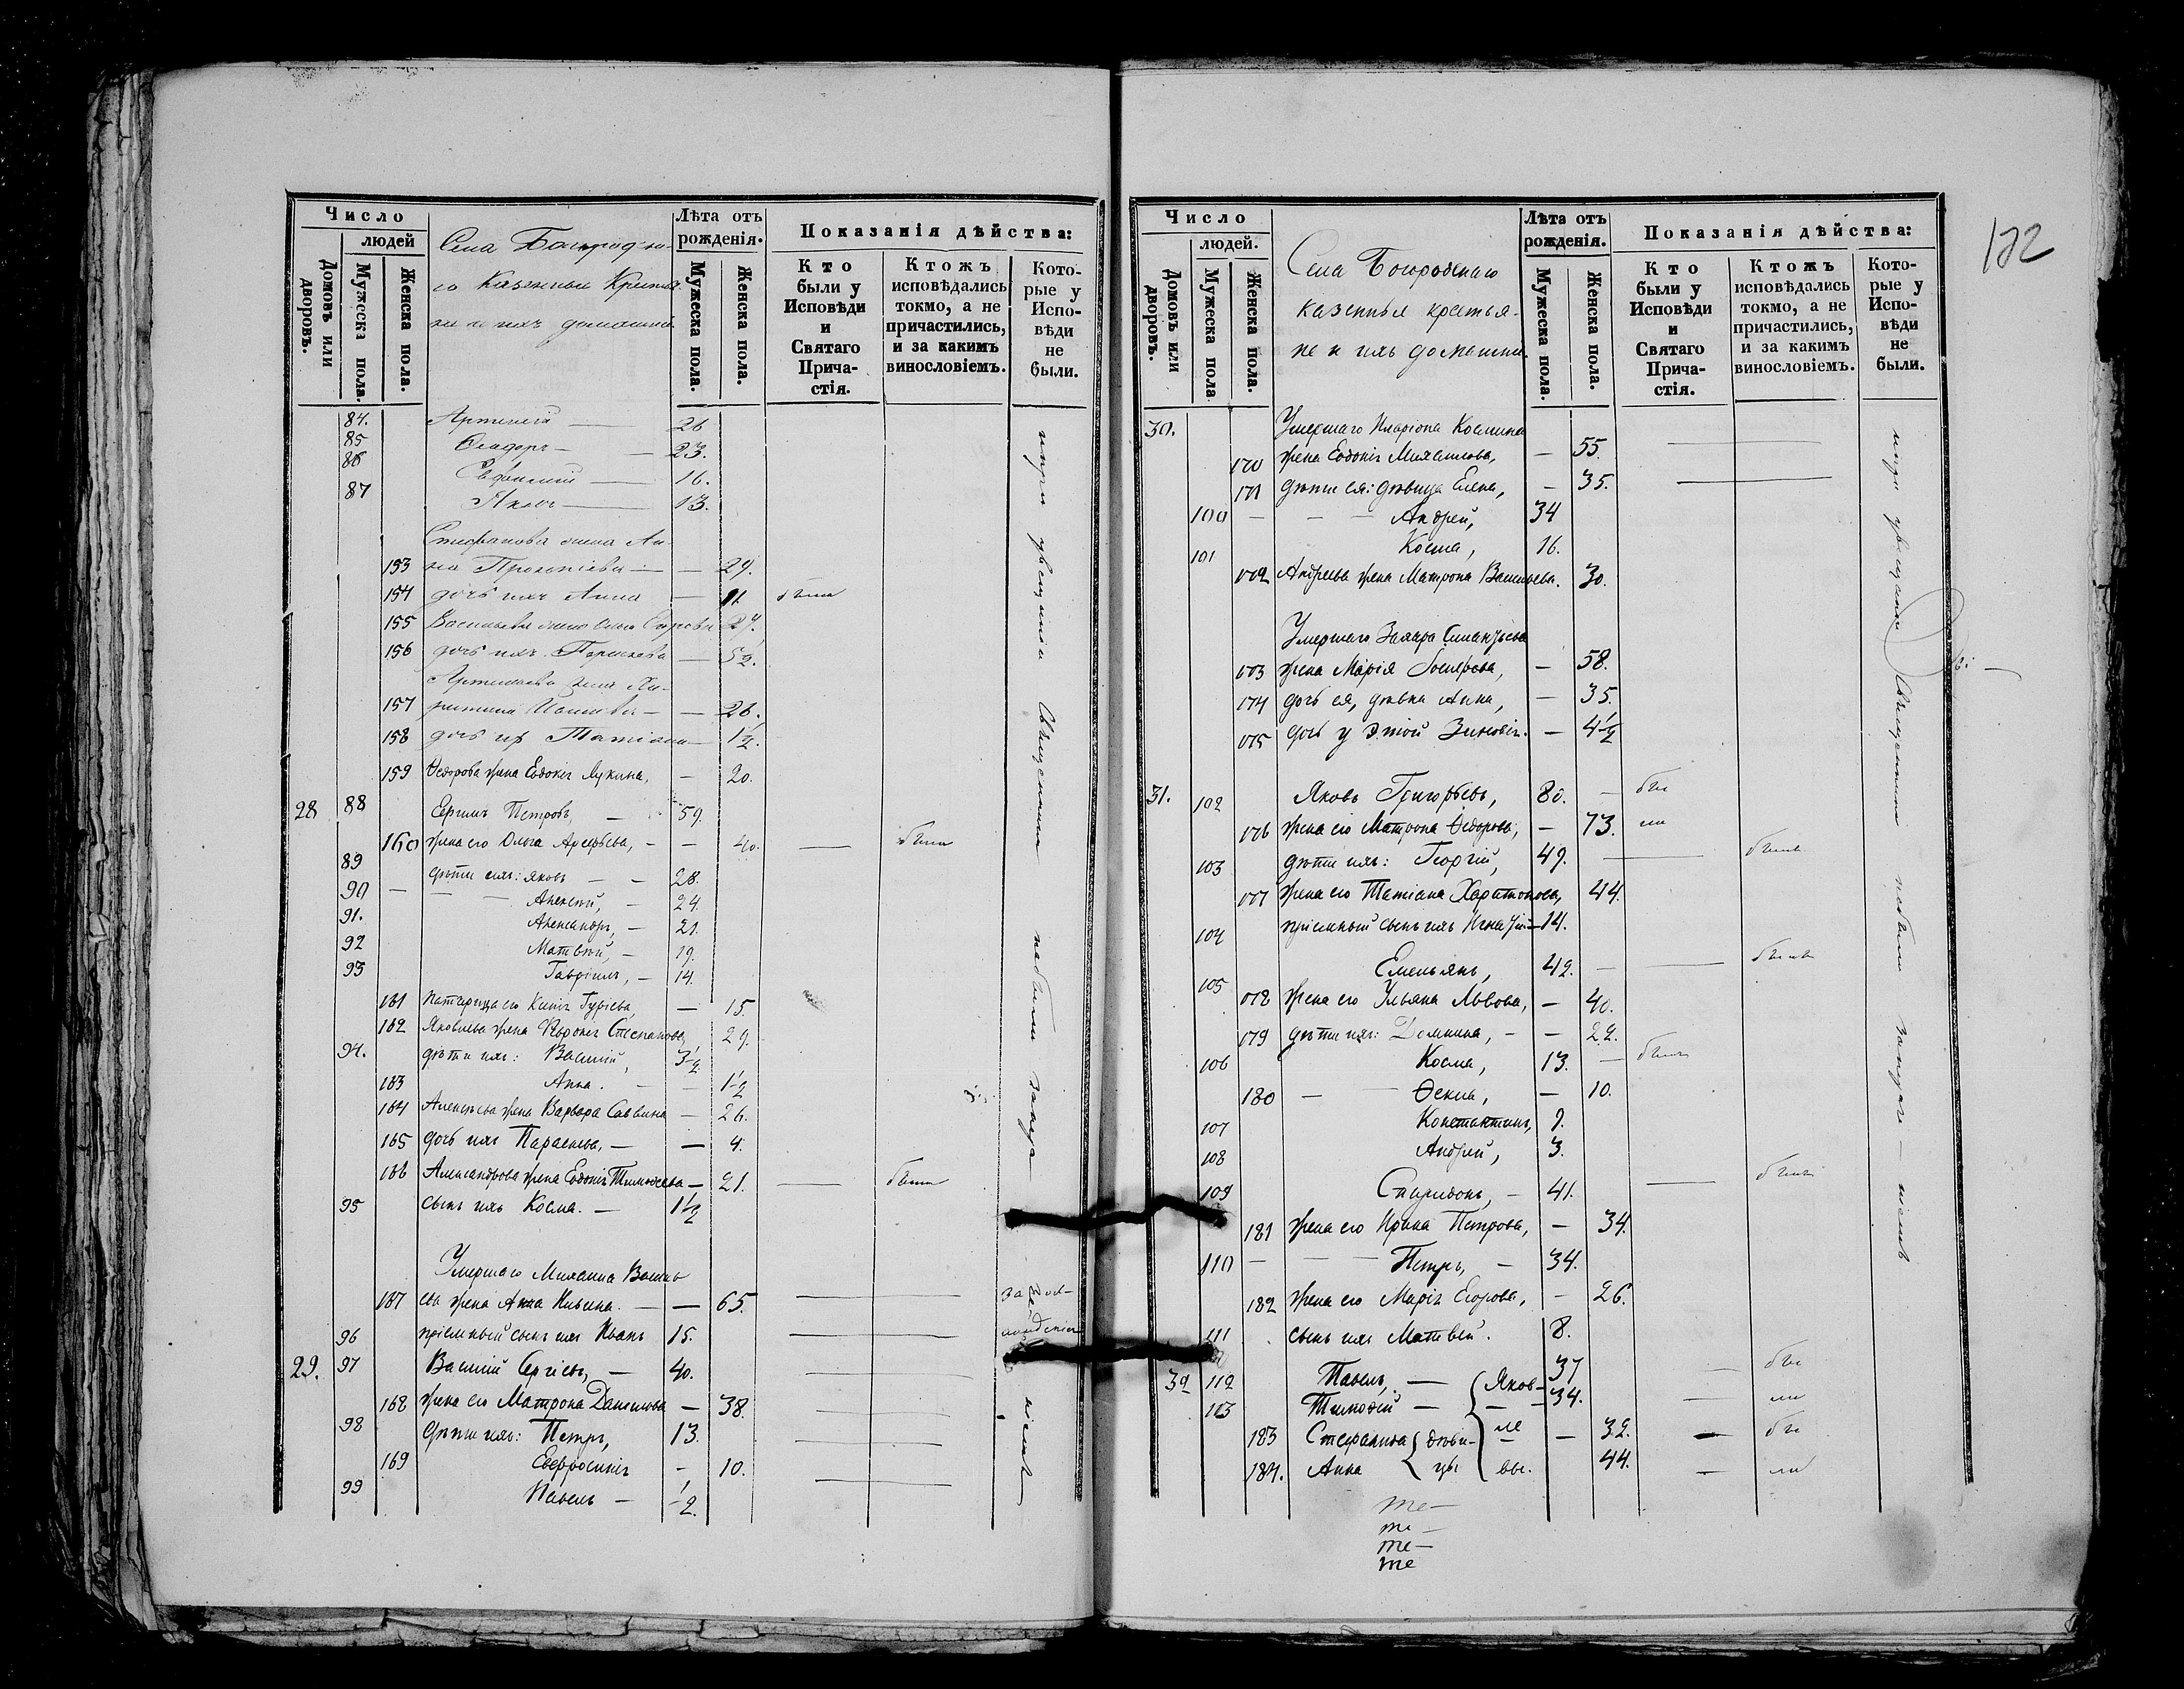 Число
людей
Домовъ или дворовъ.
Мужеска пола.
Женска пола.
Села Богородска-
го казенные Крестья-
не и ихъ домашніе
Лѣта отъ рожденія.
Мужеска пола.
Женска пола.
Показанія дѣйства:
Кто были у Исповѣди и Святаго Прича-стія.
Ктожъ исповѣдались токмо, а не причастились, и за какимъ винословіемъ.
Кото-рые у Испо-вѣди не были.
84. Артемій — 26
85 Ѳеодоръ — 23.
86 Евфимій — 16.
87 Яковъ — 13.
Стефанова жена Ан-
153 на Прокопіева — — 29.
154 дочь ихъ Анна — 11. были
155 Васильева жена 27.
156 дочь ихъ Параскева — 5 1/2.
Артемьева жена Ха-
157 ритина — — 26.
158 дочь их Татіана — 1 1/2.
159 Ѳедорова жена Евдокія Лукина, — 20.
28 88 Сергій Петровъ, — 59.
160 жена его Ольга Арефьева, — — 40. — были
89 дѣти ихъ: Яковъ — — 28.
90 — — — Алексѣй, — 24.
91. Александръ, — 21.
92 Матвѣй, — 19.
93 Гавріилъ, — 14.
161 его Гуріева, — 15.
162 Яковлева жена Степанова, 29.
94. дѣти ихъ: Василій, 3 1/2
163 Анна. — — 1 1/2
164 Алексѣева жена Варвара Саввина — 26.
165 дочь ихъ Параскева, — — 4.
166 Александрова жена Евдокія Тимоѳеева — 21. — были
95 сынъ ихъ Косма. — 1 1/2
Умершаго Михаила Василь
167 ева жена Анна — — 65. —
96 пріемный сынъ ихъ Иванъ 15. —
29. 97 Василій Сергіевъ, — 40. —
168 жена его Матрона Данилова — 38. —
98 дѣти ихъ: Петръ, 13. —
169 Евфросинія — 10. —
99 Павелъ — 1/2.
при увѣщаніи Священника небыли
172
Число
людей.
Домовъ или дворовъ.
Мужеска пола
Женска пола.
Села Богородскаго
казенные крестья-
не и ихъ домашніе.
Лѣта отъ рожденія.
Мужеска пола.
Женска пола.
Показанія дѣйства:
Кто были у Исповѣди и Святаго Прича-стія.
Ктожъ исповѣдались токмо, а не причастились, и за какимъ винословіемъ.
Кото-рые у Испо-вѣди не были.
30. Умершаго Иларіона Космина
170 жена Евдокія Михаилова, — 55. —
171 дѣти ея: дѣвица Елена, — 35. —
100 — — — Андрей, 34
101 Косма, 16.
172 Андреева жена Матрона Васильева. 30.
Умершаго Захара
173 жена Марія — 58.
174 дочь ея, дѣвка Анна, — 35.
175 дочь у этой Зиновія. — 4 1/2
31. 102 Яковъ Григорьевъ, 80. — бы
176 жена его Матрона Ѳедорова, — 73. ли
103 дѣти ихъ: Георгій, 49. — были
177 жена его Татіана Харитонова, 44.
104 пріемный сынъ ихъ Игнатій — 14.
105 Емельянъ, 42. — были
178 жена его Ульяна Львова, — 40.
179 дѣти ихъ: Домнина, — — 22.
106 Косма, 13. — были
180 — — Ѳекла, — 10.
107 Константинъ, 9.
108 Андрей, 3.
109 Спиридонъ, — 41. — были
181 жена его Ирина Петрова, — 34.
110 — — — Петръ, — 34.
182 жена его Марія Егорова, — 26.
111 сынъ ихъ Матвѣй. 8.
32 112 Павелъ, — Яков- 37 — бы
113 Тимоѳей — — 34. — ли
183 Стефанида дѣви- ле — 32. — бы
184. Анна цы вы. 44. — ли
те —
те —
те —
те
при увѣщаніи Священника небыли